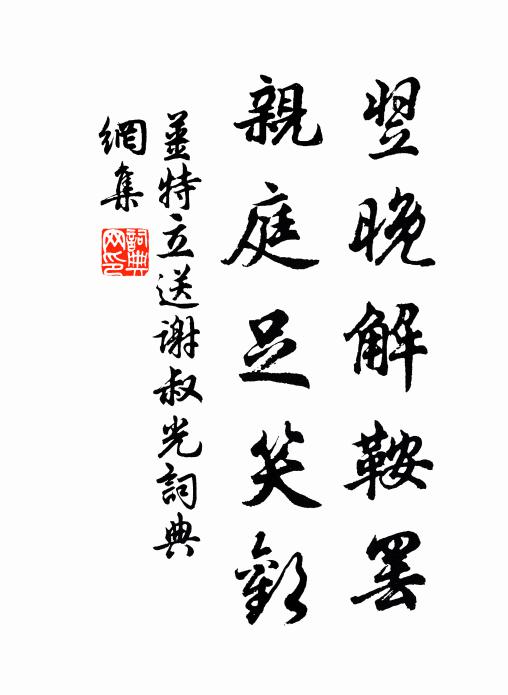 翌晚解鞍罢
親庭足笑歡
姜特立送谢叔光詞典
網集
詞典網印